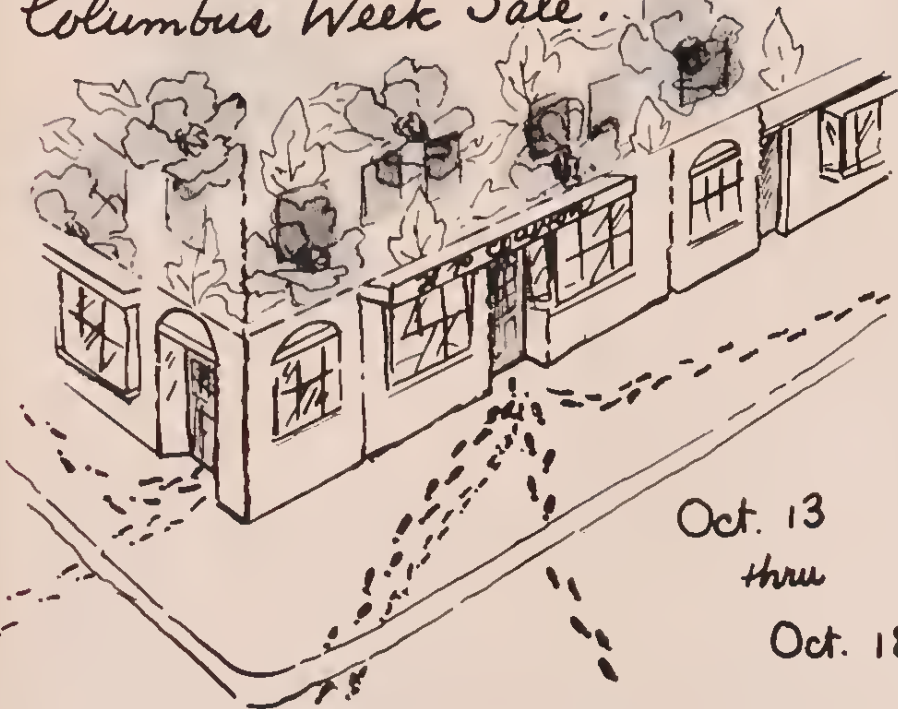 Columbus Week Sale.
Oct. 13
thru
Oct. 18